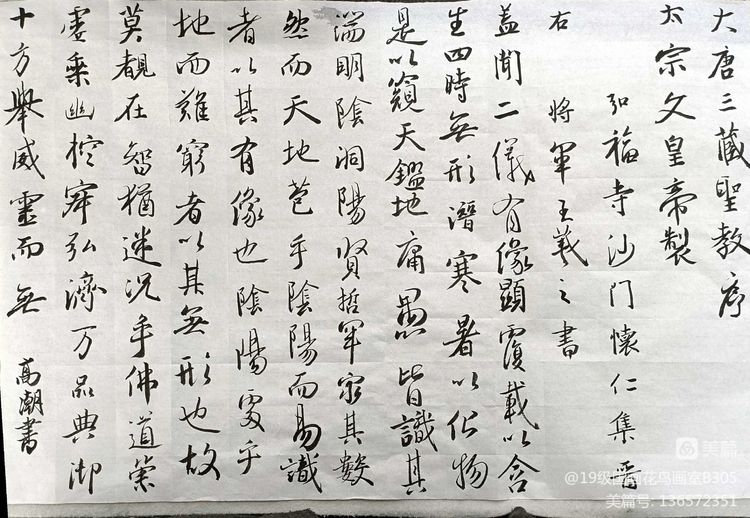 大唐三藏聖教序
太宗文皇帝製
弘福寺沙門懷仁集晋
右將軍王羲之書
蓋聞二儀有像顯覆載以含
生四時無形潛寒暑以化物
是以窺天鑑地庸愚皆識其
端明陰洞陽賢哲罕窮其數
然而天地苞乎陰陽而易識
者以其有像也陰陽處乎
地而難窮者以其無形也故
莫覩在智猶迷況乎佛道崇
虛乗幽控寂弘濟万品典御
十方舉威靈而無
高潮書
美篇
@19级国画花鸟画室B305
美篇号: 136572351